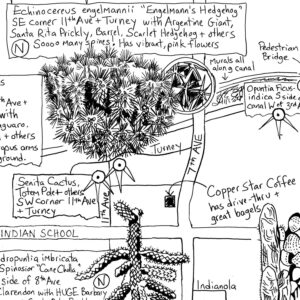 Echinocereus engelmannii "Engelmann's Hedgehog"
SE corner 11th Ave + Turney with Argentine Giant,
Santa Rita Prickly, Barrel, Scarlet Hedgehog + others
N Sooo many Spines! Has vibrant, pink flowers
Murals all
along canal
Pedestrian
Bridge
Ave +
with
+ others
arms
ground.
Opuntia Ficus-
indica S side
canal W 3rd
Turney
7th AVE
Senita Cactus,
Totem Pole + others
SW corner 11th Ave
+ Turney
Ave
Copper Star Coffee
has drive-thru +
great bagels
INDIAN SCHOOL
imbricata
Spinosior "Cane Cholla"
side of 8th Ave
Clarendon with HUGE Barbary
N
Indianola